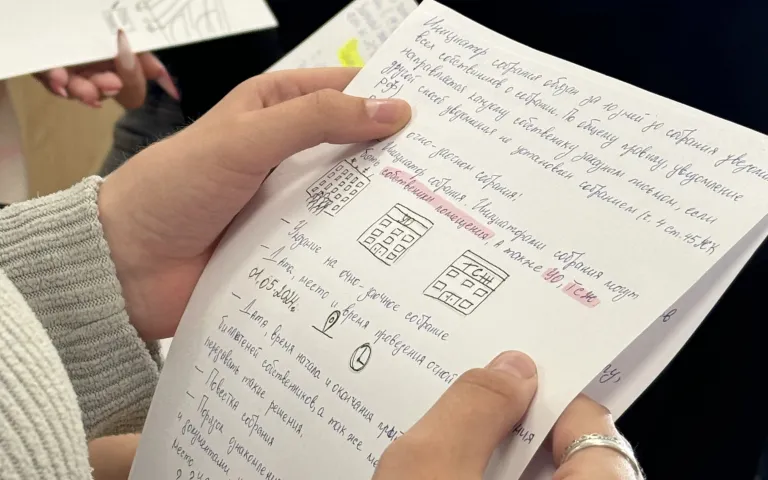 Инициатор собрания обязан за 10 дней до собрания уведомить
всех собственников о собрании. По общему правилу уведомление
направляется каждому собственнику заказным письмом, если
другой способ уведомления не установлен собранием (ч. 4 ст. 45 ЖК
РФ)
очно-заочном собрании:
Инициатор собрания. Инициаторами собрания могут
быть собственники помещения, а также УО, ТСЖ
УО
ТСЖ
- Указание на очно-заочное собрание
- Дата, место и время проведения очной
01.05.2024г.
- Дата, время начала и окончания
бюллетеней собственников, а так же
передавать такие решения.
- Повестка собрания
- Порядок ознакомления
и документами,
место